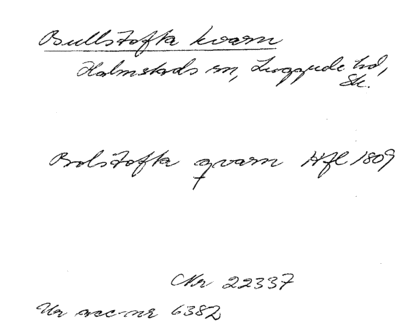 Bullstofta kvarn
Halmstads sn, Luggude hd,
Sk.
Bolstofta qvarn Hfl 1809
Nr 22337
Ur acc-nr 6382